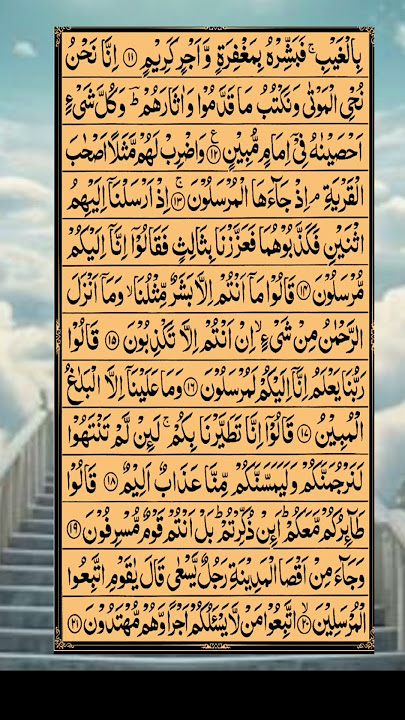 بِالْغَيْبِ ۚ فَبَشِّرْهُ بِمَغْفِرَةٍ وَّاَجْرٍ كَرِيْمٍ ﴿۱۱﴾ اِنَّا نَحْنُ
نُحْيِ الْمَوْتٰى وَنَكْتُبُ مَا قَدَّمُوْا وَاٰثَارَهُمْ ؕ وَكُلَّ شَيْءٍ
اَحْصَيْنٰهُ فِيْۤ اِمَامٍ مُّبِيْنٍ ﴿۱۲﴾ ع وَاضْرِبْ لَهُمْ مَّثَلًا اَصْحٰبَ
الْقَرْيَةِ ۘ اِذْ جَآءَهَا الْمُرْسَلُوْنَ ۚ ﴿۱۳﴾ اِذْ اَرْسَلْنَاۤ اِلَيْهِمُ
اثْنَيْنِ فَكَذَّبُوْهُمَا فَعَزَّزْنَا بِثَالِثٍ فَقَالُوْۤا اِنَّاۤ اِلَيْكُمْ
مُّرْسَلُوْنَ ﴿۱۴﴾ قَالُوْا مَاۤ اَنْتُمْ اِلَّا بَشَرٌ مِّثْلُنَا ۙ وَمَاۤ اَنْزَلَ
الرَّحْمٰنُ مِنْ شَيْءٍ ۙ اِنْ اَنْتُمْ اِلَّا تَكْذِبُوْنَ ﴿۱۵﴾ قَالُوْا
رَبُّنَا يَعْلَمُ اِنَّاۤ اِلَيْكُمْ لَمُرْسَلُوْنَ ﴿۱۶﴾ وَمَا عَلَيْنَاۤ اِلَّا الْبَلٰغُ
الْمُبِيْنُ ﴿۱۷﴾ قَالُوْۤا اِنَّا تَطَيَّرْنَا بِكُمْ ۚ لَئِنْ لَّمْ تَنْتَهُوْا
لَنَرْجُمَنَّكُمْ وَلَيَمَسَّنَّكُمْ مِّنَّا عَذَابٌ اَلِيْمٌ ﴿۱۸﴾ قَالُوْا
طَآئِرُكُمْ مَّعَكُمْ ؕ اَئِنْ ذُكِّرْتُمْ ؕ بَلْ اَنْتُمْ قَوْمٌ مُّسْرِفُوْنَ ﴿۱۹﴾
وَجَآءَ مِنْ اَقْصَا الْمَدِيْنَةِ رَجُلٌ يَّسْعٰى قَالَ يٰقَوْمِ اتَّبِعُوا
الْمُرْسَلِيْنَ ۙ ﴿۲۰﴾ اتَّبِعُوْا مَنْ لَّا يَسْـَٔلُكُمْ اَجْرًا وَّهُمْ مُّهْتَدُوْنَ ﴿۲۱﴾